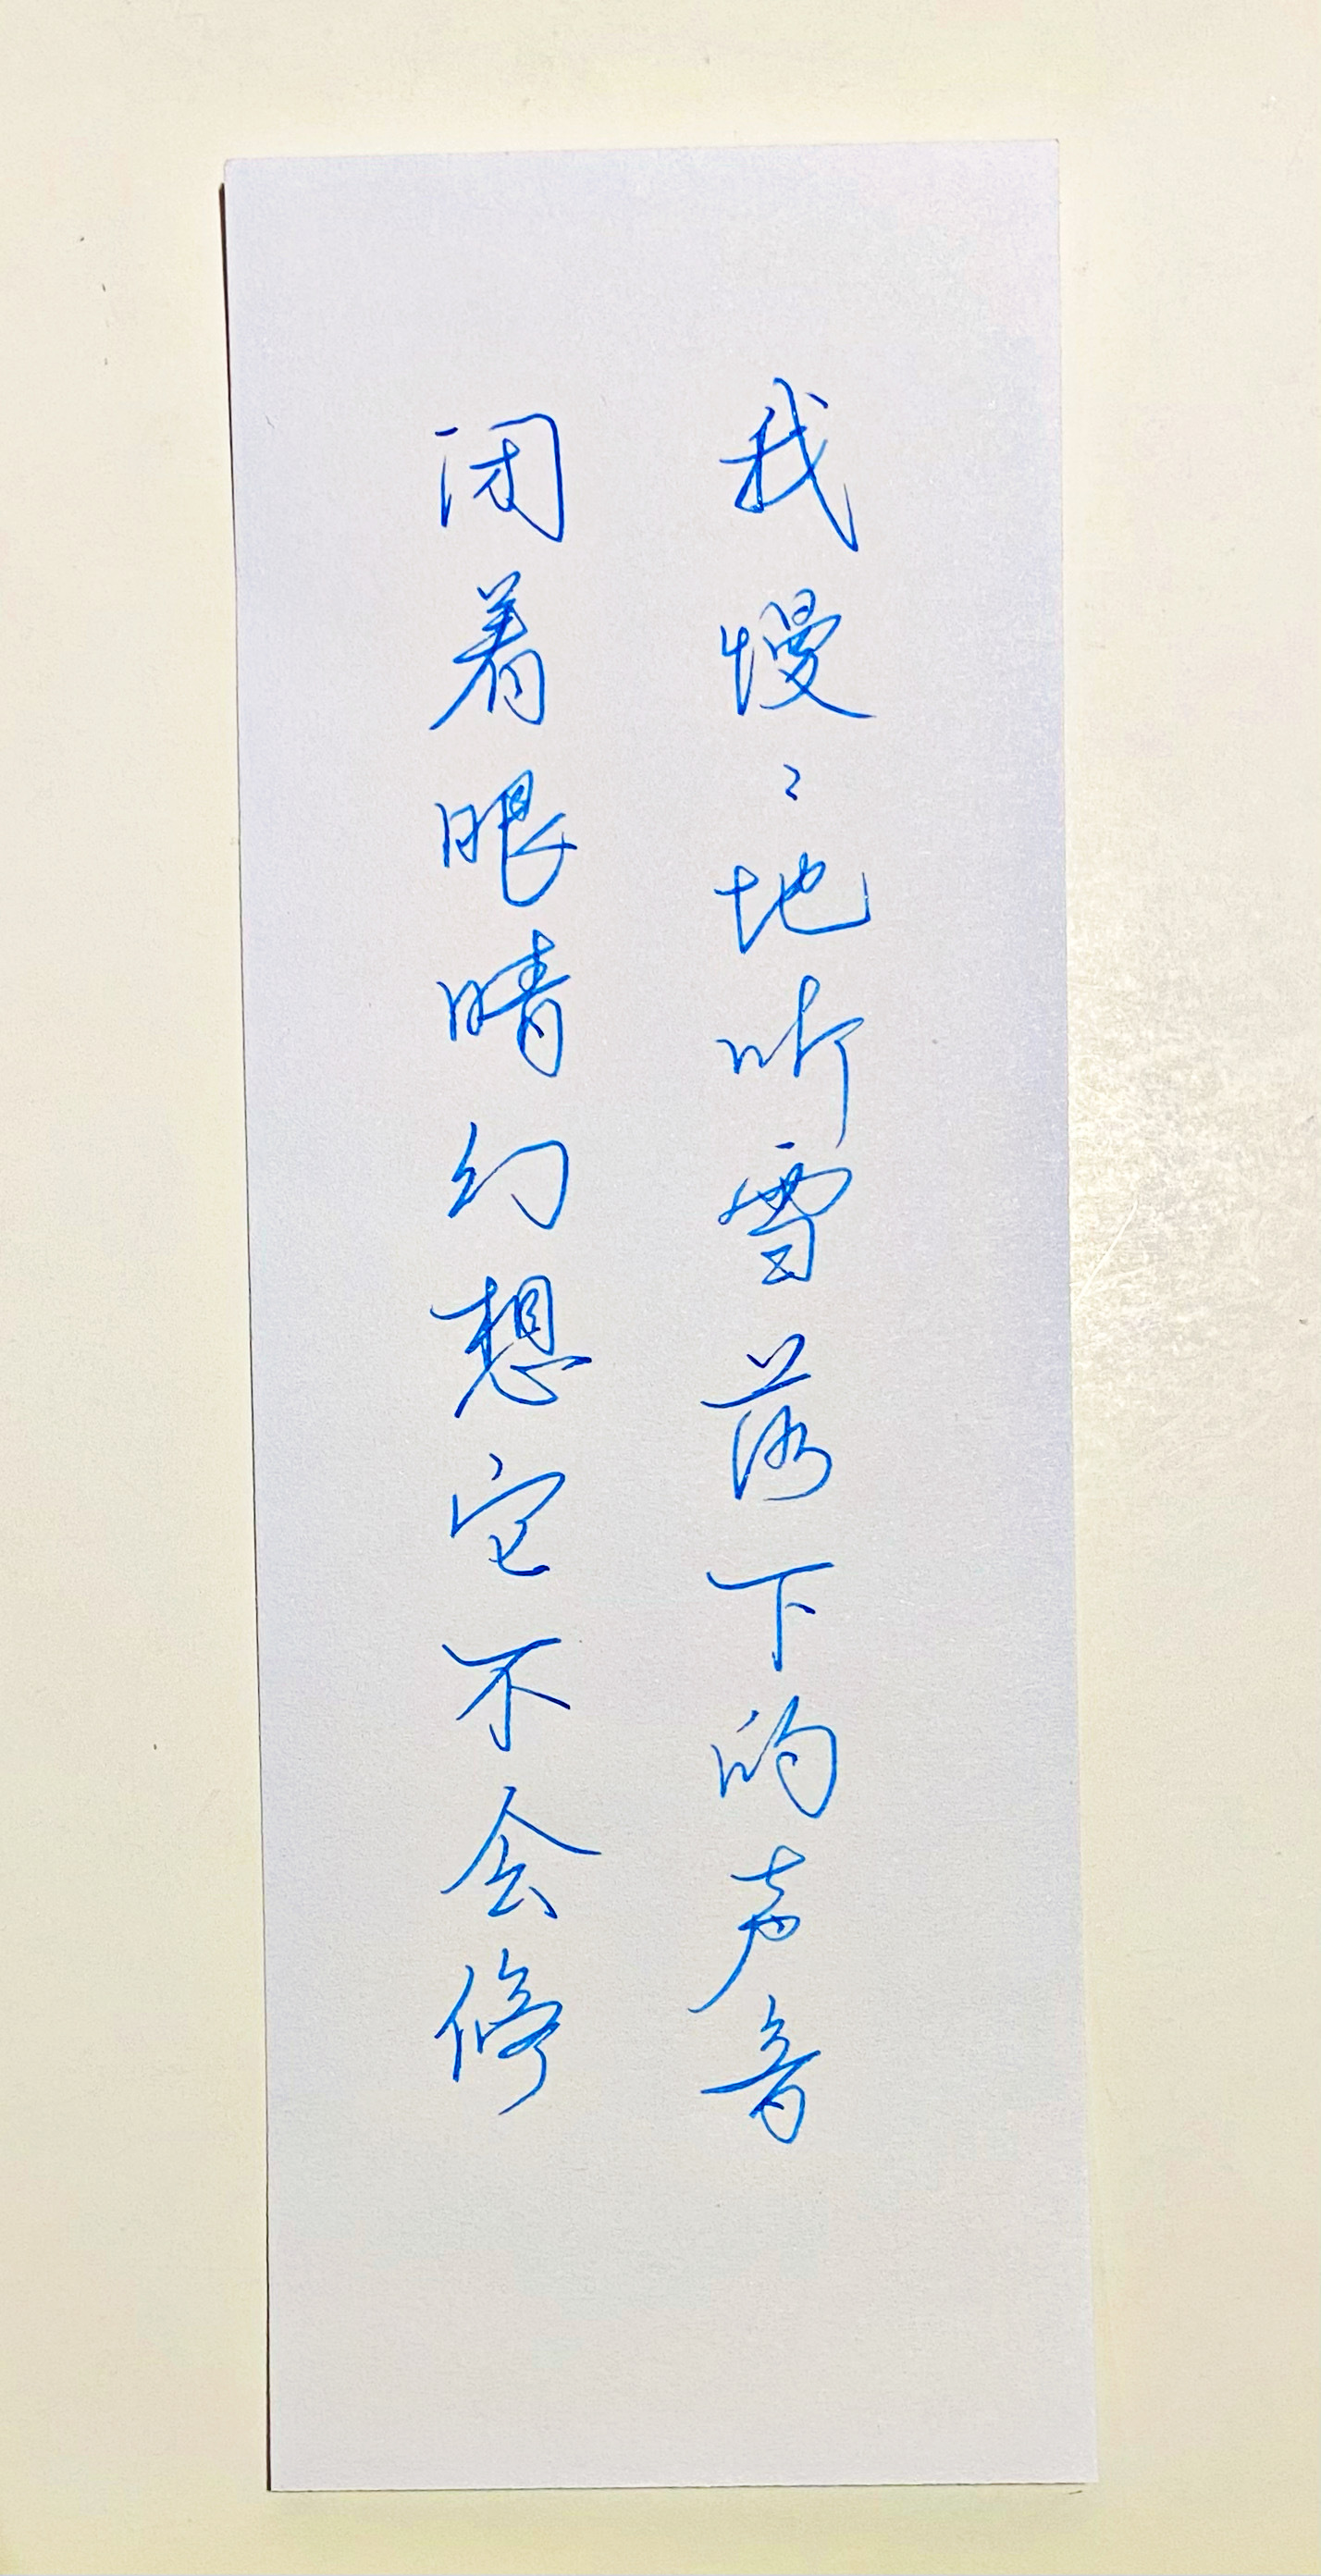 我慢々地听雪落下的声音
闭着眼睛幻想它不会停